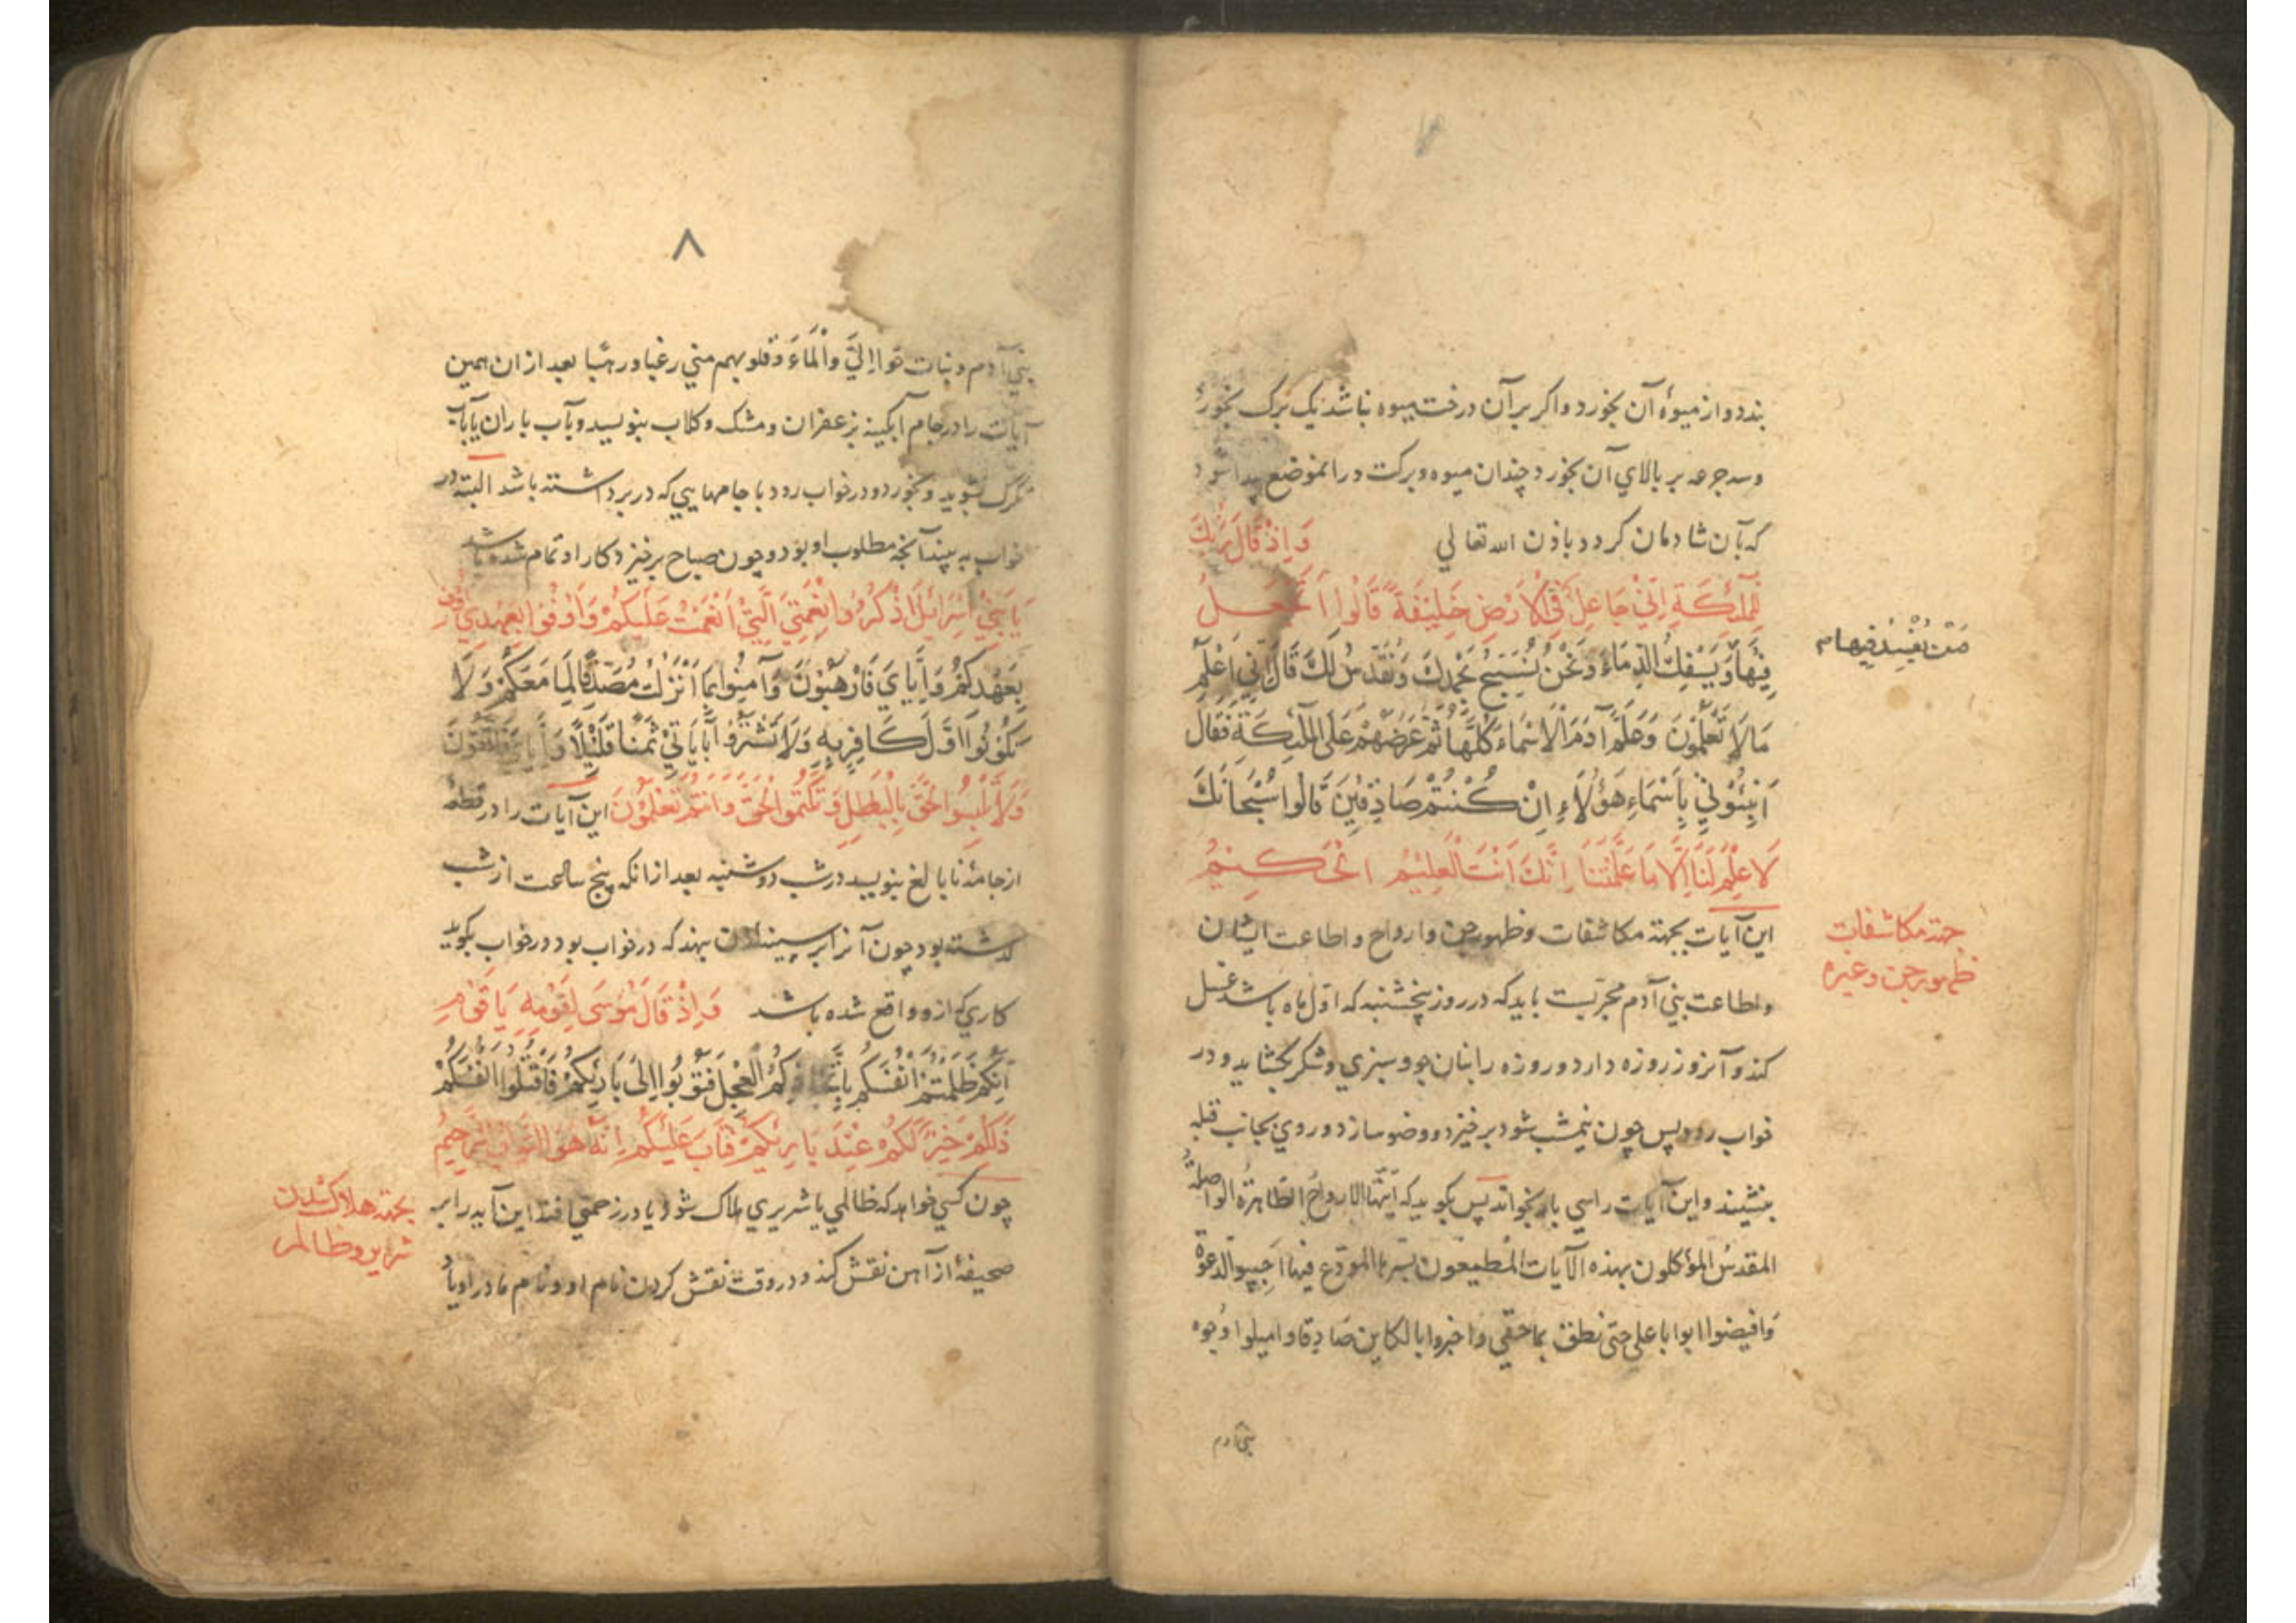 بندد و از میوهٔ آن بخورد و اکر بر آن درخت میوه نباشد یک برک بخورد
و سه جرعه بر بالاي آن بخورد چندان میوه و برکت در انموضع پیدا شود
که بآن شادمان کردد باذن الله تعالي وَاِذْ قَالَ رَبُّكَ
لِلْمَلٰٓئِكَةِ اِنِّيْ جَاعِلٌ فِي الْاَرْضِ خَلِيْفَةً قَالُوا اَتَجْعَلُ
مَنْ يُفْسِدُ فِيهَا م
فِيْهَا وَيَسْفِكُ الدِّمَاءَ وَنَحْنُ نُسَبِّحُ بِحَمْدِكَ وَنُقَدِّسُ لَكَ قَالَ اِنِّي اَعْلَمُ
مَا لَا تَعْلَمُوْنَ وَعَلَّمَ آدَمَ الْاَسْمَاءَ كُلَّهَا ثُمَّ عَرَضَهُمْ عَلَى الْمَلٰئِكَةِ فَقَالَ
اَنْبِئُوْنِيْ بِاَسْمَاءِ هٰؤُلَاءِ اِنْ كُنْتُمْ صَادِقِيْنَ قَالُوا سُبْحَانَكَ
لَا عِلْمَ لَنَا اِلَّا مَا عَلَّمْتَنَا اِنَّكَ اَنْتَ الْعَلِيْمُ الْحَكِيْمُ
این آیات بجهتة مکاشفات و ظهور جن و ارواح و اطاعت ایشان
جهتة مکاشفات
ظهور جن و غیره
و اطاعت بني آدم مجربست باید که در روز پنجشنبه که اوّل ماه باشد غسل
کند و آنروز روزه دارد و روزه را بنان جو و سبزي و شکر بکشاید و در
خواب رود پس چون نیمشب شود برخیزد و وضو سازد و روي بجانب قبله
بنشیند و این آیات را سي بار بخواند پس بکوید که اَیّتها الارواحُ الطّاهرةُ الواصلةُ
المقدسُ المؤکلون بهذه الآیات المطیعون بسرّها المودع فیها اجیبوا الدعوة
وافیضوا ابوابا علي حتی نطق بما حقي واخبروا بالکاین صادقا وامیلوا وجوه
بني آدم
٨
بني آدم و بنات حوا اِليَّ واَلْمَاءَ وقلوبهم مني رغبا ورهبًا بعد از ان همین
آیات را در جام آبکینه بزعفران و مشک و کلاب بنویسد و بآب باران یا بآب
تکرک بشوید و بخورد و در خواب رود با جامهایي که در بر داشته باشد البته در
خواب به بیند آنچه مطلوب او بود و چون صباح برخیزد کار او تمام شده باشد
يَا بَنِيْ اِسْرَائِلَ اذْكُرُوا نِعْمَتِيَ الَّتِيْ اَنْعَمْتُ عَلَيْكُمْ وَاَوْفُوْا بِعَهْدِيْ اُوْفِ
بِعَهْدِكُمْ وَاِيَّايَ فَارْهَبُوْنَ وَآمِنُوا بِمَا اَنْزَلْتُ مُصَدِّقًا لِمَا مَعَكُمْ وَلَا
تَكُوْنُوْا اَوَّلَ كَافِرٍ بِهِ وَلَا تَشْتَرُوْا بِآيَاتِيْ ثَمَنًا قَلِيْلًا وَاِيَّايَ فَاتَّقُوْنَ
وَلَا تَلْبِسُوا الْحَقَّ بِالْبَاطِلِ وَتَكْتُمُوا الْحَقَّ وَاَنْتُمْ تَعْلَمُوْنَ این آیات را در قطعه
از جامهٔ نابالغ بنویسد در شب دوشنبه بعد از انکه پنج ساعت از شب
کذشته بود چون آنرا بر سینه انان بنهد که در خواب بود در خواب بکوید
کاري که از و واقع شده باشد وَاِذْ قَالَ مُوْسَى لِقَوْمِهِ يَا قَوْمِ
اِنَّكُمْ ظَلَمْتُمْ اَنْفُسَكُمْ بِاتِّخَاذِكُمُ الْعِجْلَ فَتُوْبُوا اِلَى بَارِئِكُمْ فَاقْتُلُوا اَنْفُسَكُمْ
ذٰلِكُمْ خَيْرٌ لَكُمْ عِنْدَ بَارِئِكُمْ فَتَابَ عَلَيْكُمْ اِنَّهُ هُوَ التَّوَّابُ الرَّحِيْمُ
چون کسي خواهد که ظالمي یا شریري هلاک شود یا در زحمتي افتد این آیه را بر
بجهتة هلاک شدن
شریر و ظالم
صحیفهٔ از آهن نقش کند و در وقت نقش کردن نام او و نام مادر او یاد